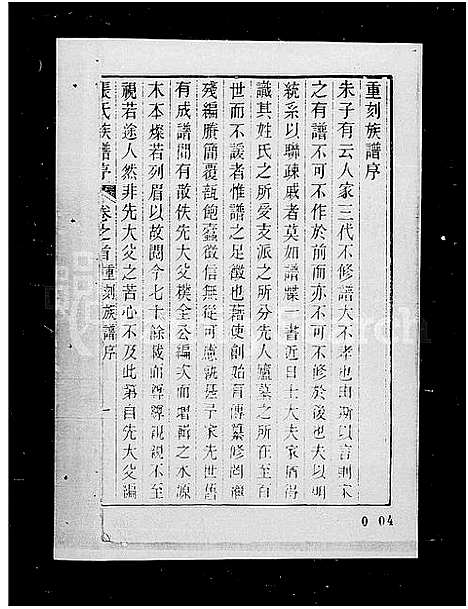 重刻族譜序
朱子有云人家三代不修譜大不孝也由斯以言則家
之有譜不可不作於前而亦不可不修於後也夫以明
統系以聯疎戚者莫如譜牒一書近日士大夫家酒得
識其姓氏之所受支派之所分先人廬墓之所在至百
世而不諼者惟譜之足徵也藉使創始有傳纂修罔繼
殘編賸簡覆瓿飽蠹徵信無從可慮孰甚予家先世舊
有成譜間有散佚先大父樸全公編次而增輯之水源
木本燦若列眉以故閱今七十餘歲而尊尊親親不至
視若途人然非先大父之苦心不及此第自先大父編
張氏族譜序 卷之首 重刻族譜序
0 04